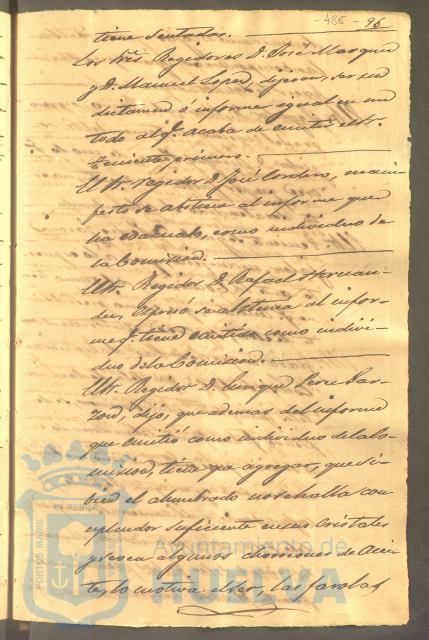 -488-
96
tiene sentados.
Los Sres. Regidores D. José Marquez
y D. Manuel Lopez, dijeron, ser su
dictamen ó informe igual en un
todo al q. acaba de emitir el Sr.
teniente primero.
El Sr. regidor D. José Cordero, mani
festó se abstiene al informe que
ha evacuado, como individuo de
la Comision.
El Sr. Regidor D. Rafael Hernan-
dez, espresó se abstenia al infor-
me q. tiene emitido como indivi-
duo de la Comision.
El Sr. Regidor D. Enrique Perez Gar-
zon, dijo, que ademas del informe
que emitió como individuo de la Co-
mision, tiene que agregar, que si
bien el alumbrado no se halla con
esplendor suficiente en sus cristales
preven algunos chorreones de Acei-
te, lo motiva el ser, las farolas
PORTUS MARIS
Ayuntamiento de
HUELVA